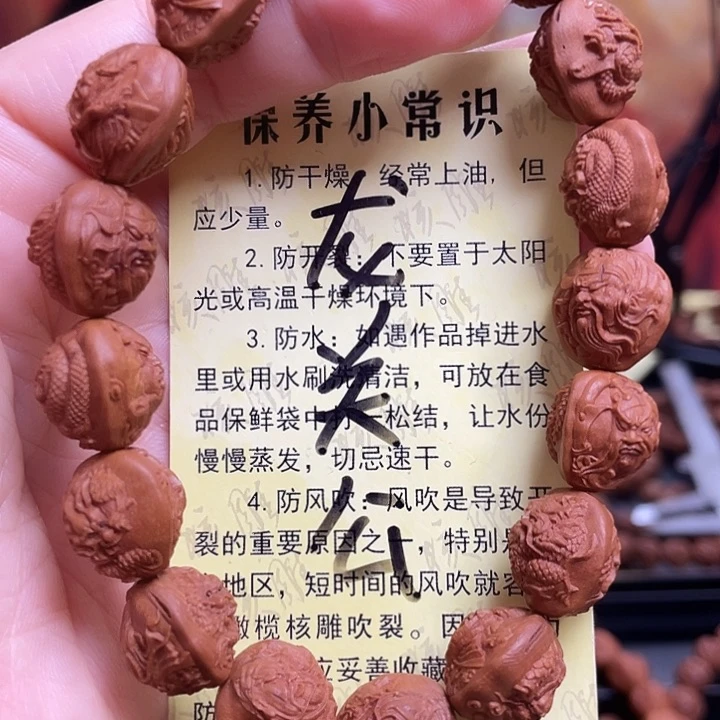 保养小常识
1. 防干燥：经常上油，但
应少量。
2. 防开裂：不要置于太阳
光或高温干燥环境下。
3. 防水：如遇作品掉进水
里或用水刷洗清洁，可放在食
品保鲜袋中打一松结，让水份
慢慢蒸发，切忌速干。
4. 防风吹：风吹是导致开
裂的重要原因之一，特别是
地区，短时间的风吹就容
橄榄核雕吹裂。因
应妥善收藏
防
龙关公